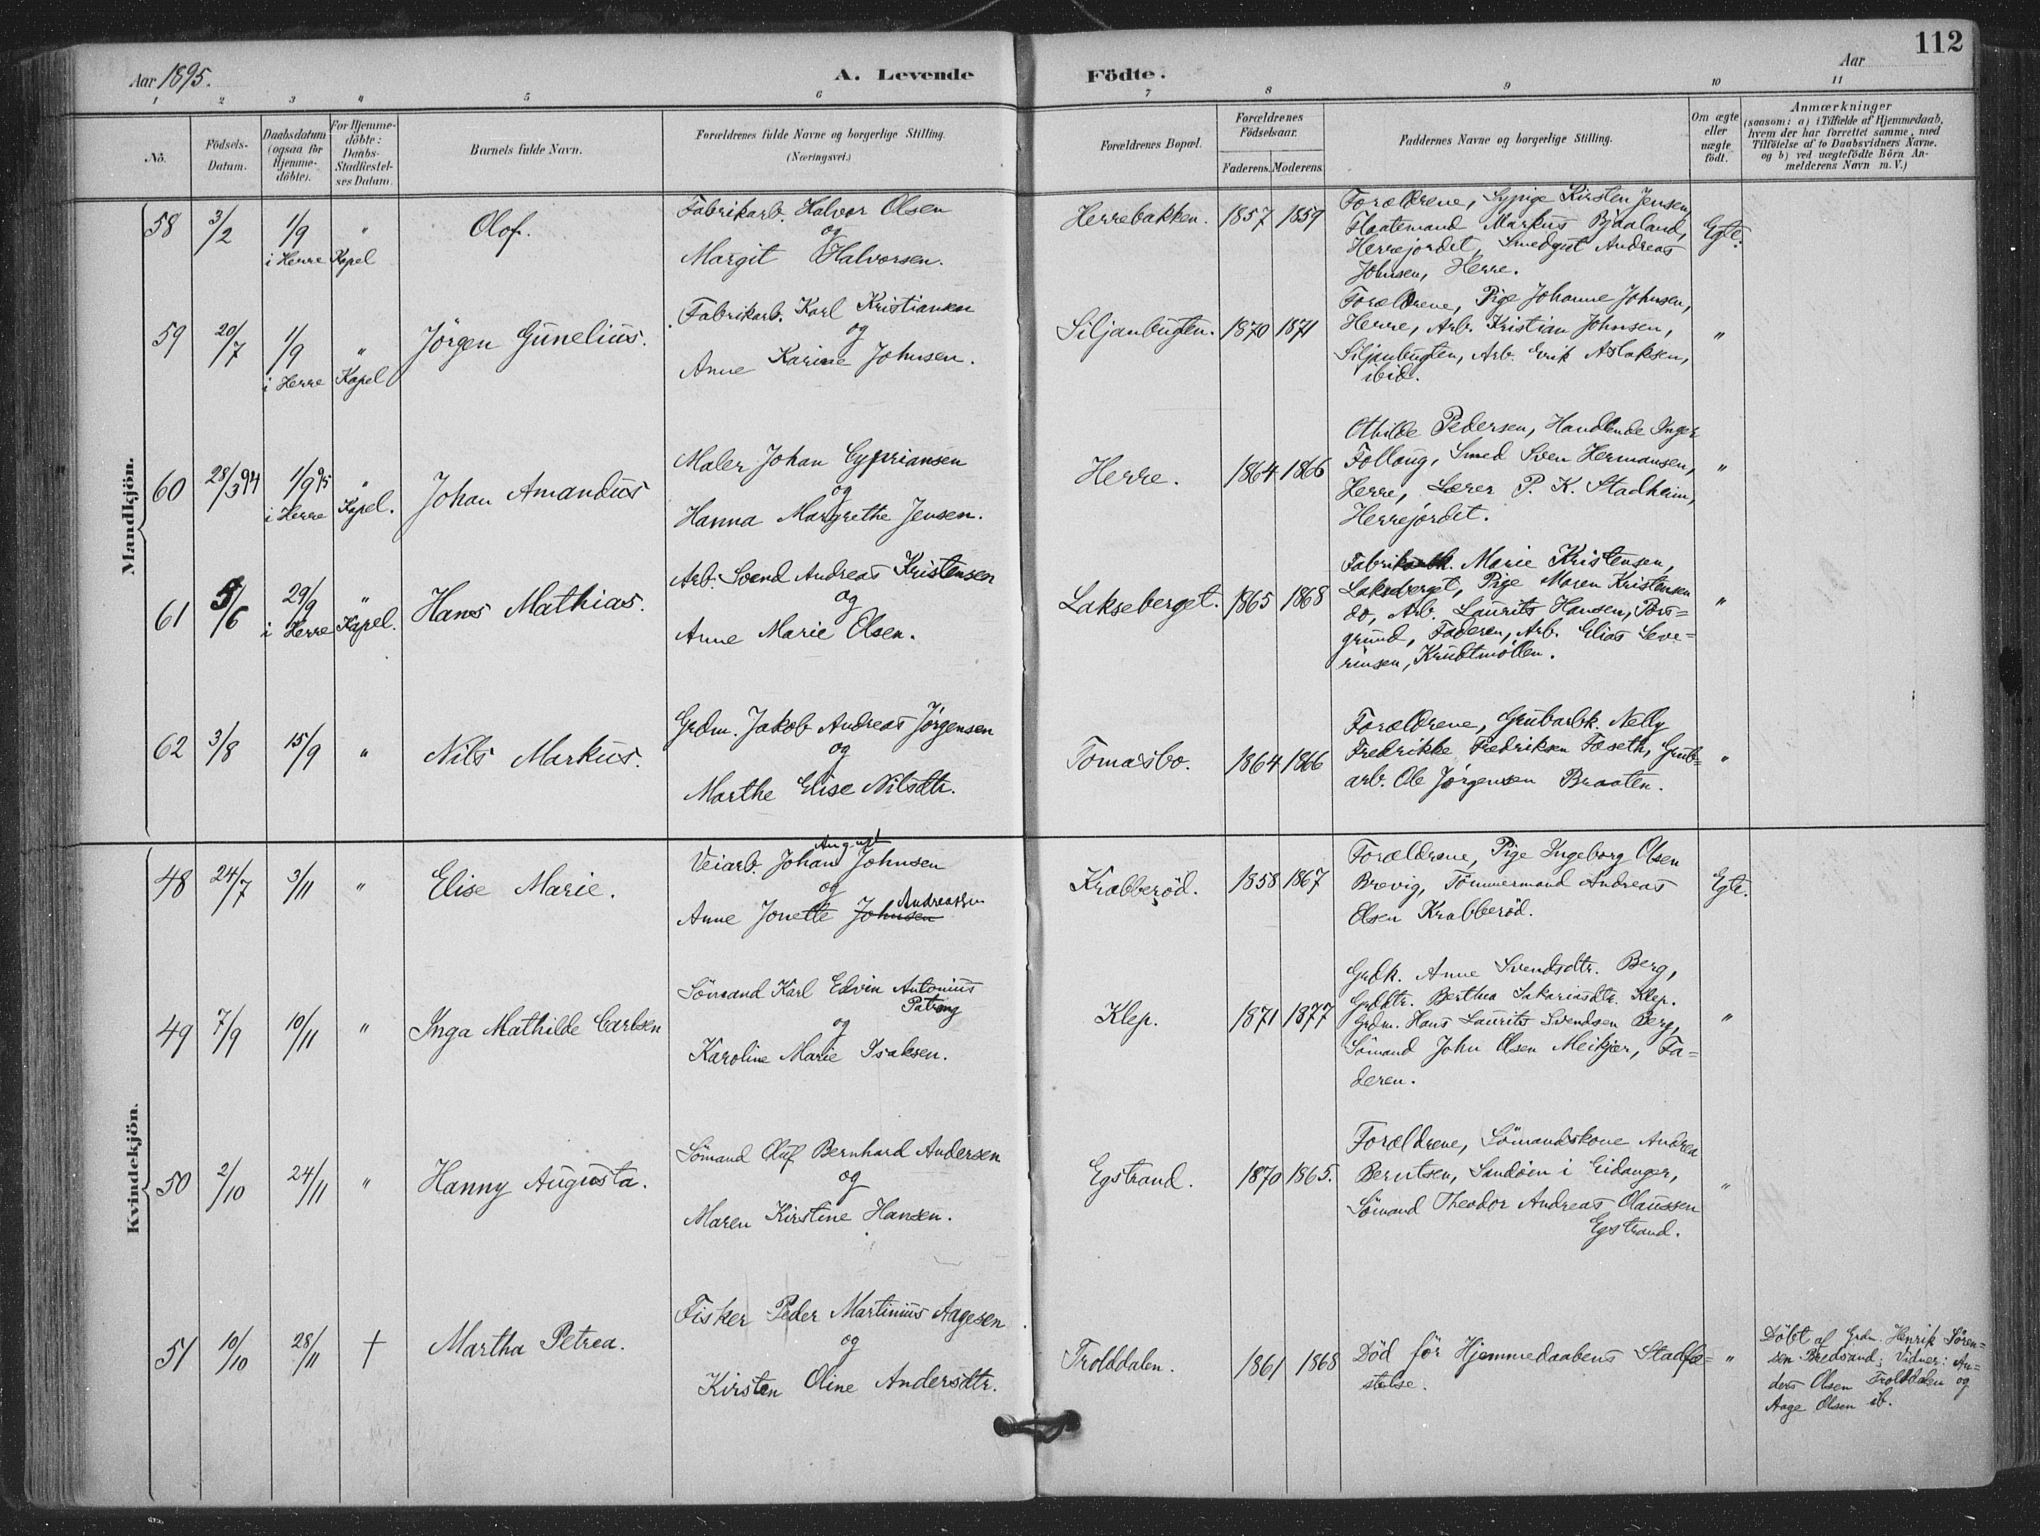 112
Aar 1895.
A. Levende Födte.
Aar
1 2 3 " 5 6 7 8 9 10 11
No.
Födsels-Datum.
Daabsdatum (ogsaa for Hjemmedöbte).
For Hjemmedöbte: Daabs-Stadfæstelses Datum.
Barnets fulde Navn.
Forældrenes fulde Navne og borgerlige Stilling.
(Næringsvei.)
Forældrenes Bopæl.
Forældrenes Födselsaar.
Faderens. Moderens.
Faddernes Navne og borgerlige Stilling.
Om ægte eller uægte födt.
Anmærkninger
(saasom: a) i Tilfælde af Hjemmedaab, hvem der har forrettet samme, med Tilföielse af to Daabsvidners Navne. og b) ved uægtefödte Börn Anmelderens Navn m. V.)
Mandkjön.
58 3/2 1/9 "
i Herre Kapel
Olof.
Fabrikarb. Halvor Olsen
og
Margit Halvorsen.
Herrebakken. 1857 1859
Forældrene, Sypige Kirsten Jensen,
Flaatemand Markus Bjaaland,
Herrejordet, Smedgist Andreas
Johnsen, Herre.
Egte.
59 20/7 1/9 "
i Herre Kapel
Jörgen Gunelius.
Fabrikarb. Karl Kristiansen
og
Anne Karine Johnsen.
Siljanbugten. 1870 1871
Forældrene, Pige Johanne Johnsen,
Herre, Arb. Kristian Johnsen,
Siljanbugten, Arb. Erik Aslaksen,
ibid.
"
60 28/3 94 1/9 95 "
i Herre Kapel.
Johan Amandus
Maler Johan Cypriansen
og
Hanna Margrethe Jensen.
Herre. 1864 1866
Othilde Pedersen, Handlende Inger
Follaug, Smed Sven Hermansen,
Herre, Lærer P. K. Stadheim,
Herrejordet.
"
61 5/6 29/9 "
i Herre Kapel.
Hans Mathias.
Arb. Svend Andreas Kristensen
og
Anne Marie Olsen.
Lakseberget. 1865 1868
Marie Kristensen,
Lakseberget, Pige Maren Kristensen
do, Arb. Laurits Hansen, Pors-
grund, Faderen, Arb. Elias Seve-
rinsen, Krudtmöllen.
"
62 3/8 15/9 "
Nils Markus.
Grdm. Jakob Andreas Jörgensen
og
Marthe Elise Nilsdtr.
Tomasbo. 1864 1866
Forældrene, Grubarbk. Nelly
Fredrikke Fredriksen Fæseth, Grub-
arb. Ole Jörgensen Braaten.
"
Kvindekjön.
48 24/7 3/11 "
Elise Marie.
August
Veiarb. Johan Johnsen
og
Andreassen
Anne Jonette Johnsen
Krabberöd. 1858 1867
Forældrene, Pige Ingeborg Olsen
Brevig, Tömmermand Andreas
Olsen Krabberöd.
Egte.
49 7/9 10/11 "
Inga Mathilde Carlsen
Sömand Karl Edvin Antonius
og
Karoline Marie Isaksen.
Klep. 1871 1877
Grdk. Anne Svendsdtr. Berg,
Grddtr. Berthea Sakariasdtr. Klep.
Grdm. Hans Laurits Svendsen Berg,
Sömand John Olsen Meikjær, Fa-
deren.
"
50 2/10 24/11 "
Hanny Augusta.
Sömand Oluf Bernhard Andersen
og
Maren Kirstine Hansen.
Egstrand. 1870 1865.
Forældrene, Sömandskone Andrea
Berntsen, Sandöen i Eidanger,
Sömand Theodor Andreas Olaussen
Egstrand.
"
51 10/10 28/11 †
Martha Petrea.
Fisker Peder Martinius Aagesen
og
Kirsten Oline Andersdtr.
Trolddalen. 1861 1868
Död för Hjemmedaabens Stadfæ-
stelse.
"
Döbt af Grdm. Henrik Sören-
sen Bredsand; Vidner: An-
ders Olsen Trolddalen og
Aage Olsen ib.